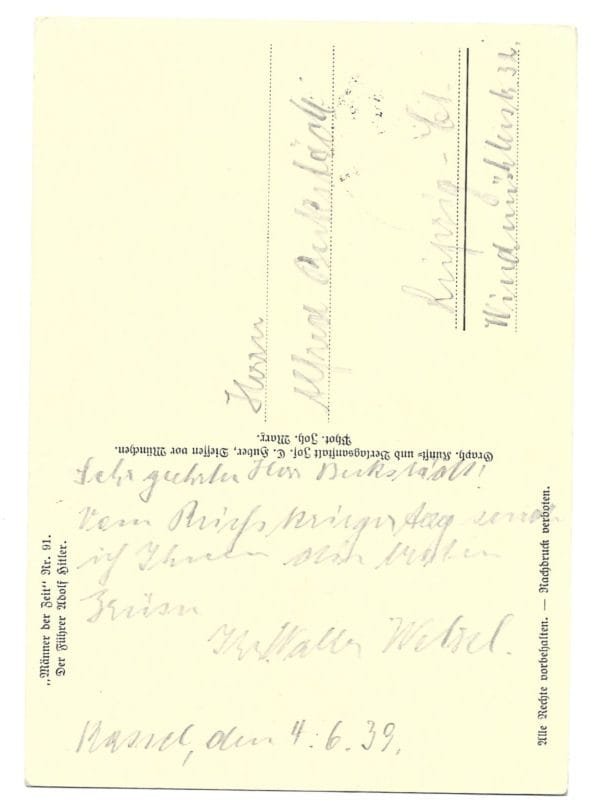 „Männer der Zeit" Nr. 91.
Der Führer Adolf Hitler.
Graph. Kunst= und Verlagsanstalt Jos. C. Huber, Diessen vor München.
Phot. Joh. Marx.
Alle Rechte vorbehalten. — Nachdruck verboten.
Herrn
Alfred Beckstädt
Leipzig - C1.
Windmühlenstr 32.
Sehr geehrter Herr Beckstädt!
Vom Reichskriegertag sende
ich Ihnen die besten
Grüsse
Ihr Walter Wetzel.
Kassel, den 4.6.39.